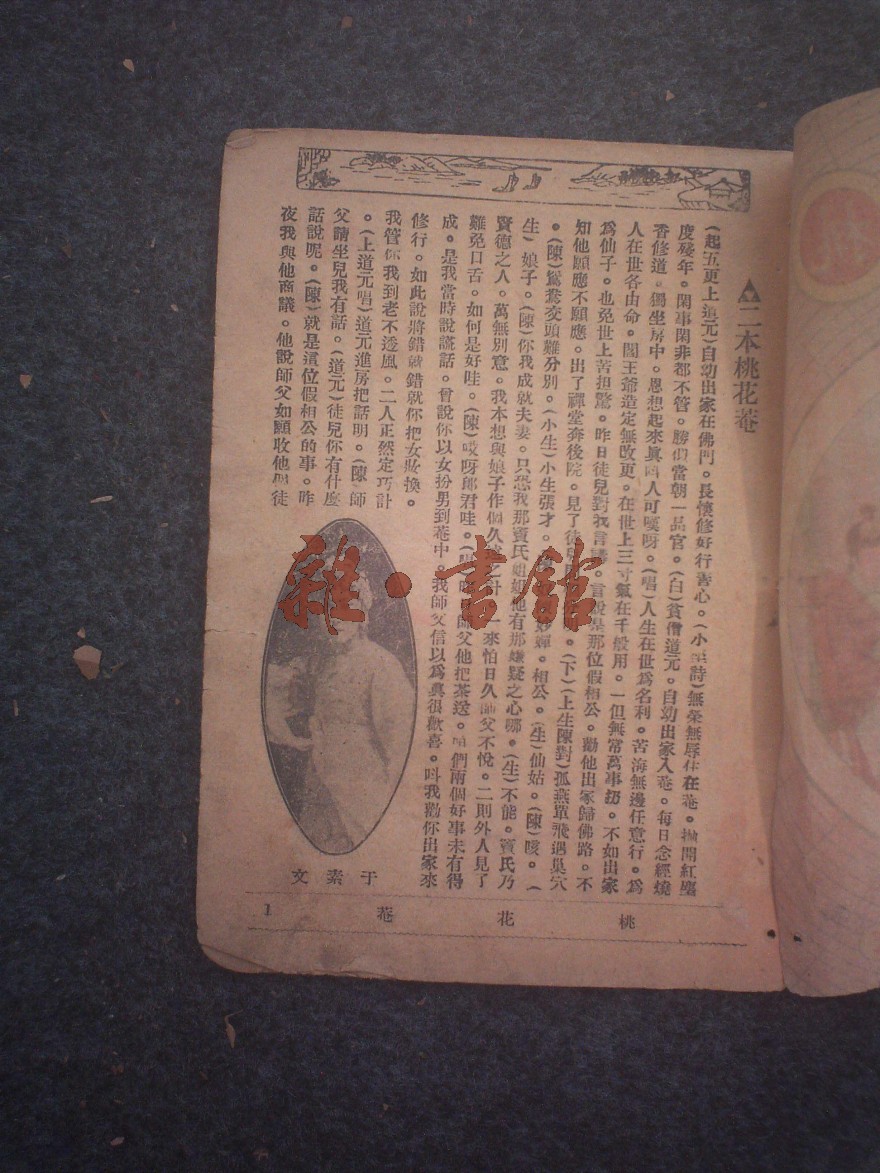 二本桃花菴
(起五更上道元)自幼出家在佛門。長懷修好行善心。(小 詩)無榮無辱住在菴。拋開紅塵
度殘年。閑事閑非都不管。勝似當朝一品官。(白)貧僧道元。自幼出家入菴。每日念經燒
香修道。獨坐房中。思想起來眞 人可嘆呀。(唱)人生在世爲名利。苦海無邊任意行。爲
人在世各由命。閻王爺造定無改更。在世上三寸氣在千般用。一但無常萬事扔。不如出家
爲仙子。也免世上苦担驚。昨日徒兒對我言講。言說是那位假相公。勸他出家歸佛路。不
知他願應不願應。出了禪堂奔後院。見了徒 。(下)(上生陳對)孤燕單飛遇巢穴
。(陳)鴛鴦交頭難分別。(小生)小生張才。 妙嬋。相公。(生)仙姑。(陳)咳。(
生)娘子。(陳)你我成就夫妻。只恐我那竇氏姐姐他有那嫌疑之心哪。(生)不能。竇氏乃
賢德之人。萬無別意。我本想與娘子作個久 之計。一來怕日久師父不悅。二則外人見了
難免口舌。如何是好哇。(陳)哎呀郎君哇。 師父他把茶送。咱們兩個好事未有得
成。是我當時說謊話。曾說你以女扮男到菴中。我師父信以爲眞很歡喜。叫我勸你出家來
修行。如此說將錯就錯就你把女粧換。
我管你我到老不透風。二人正然定巧計
。(上道元唱)道元進房把話明。(陳)師
父請坐兒我有話。(道元)徒兒你有什麽
話說呢。(陳)就是這位假相公的事。昨
夜我與他商議。他說師父如願收他 徒
于素文
桃花菴
1
雜·書館